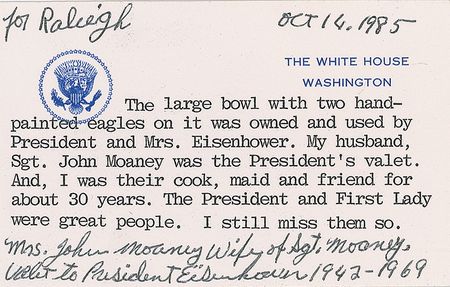 for Raleigh OCT 14, 1985
THE WHITE HOUSE
WASHINGTON
The large bowl with two hand-
painted eagles on it was owned and used by
President and Mrs. Eisenhower. My husband,
Sgt. John Moaney was the President's valet.
And, I was their cook, maid and friend for
about 30 years. The President and First Lady
were great people. I still miss them so.
Mrs. John Moaney Wife of Sgt. Moaney.
Valet to President Eisenhower 1942-1969